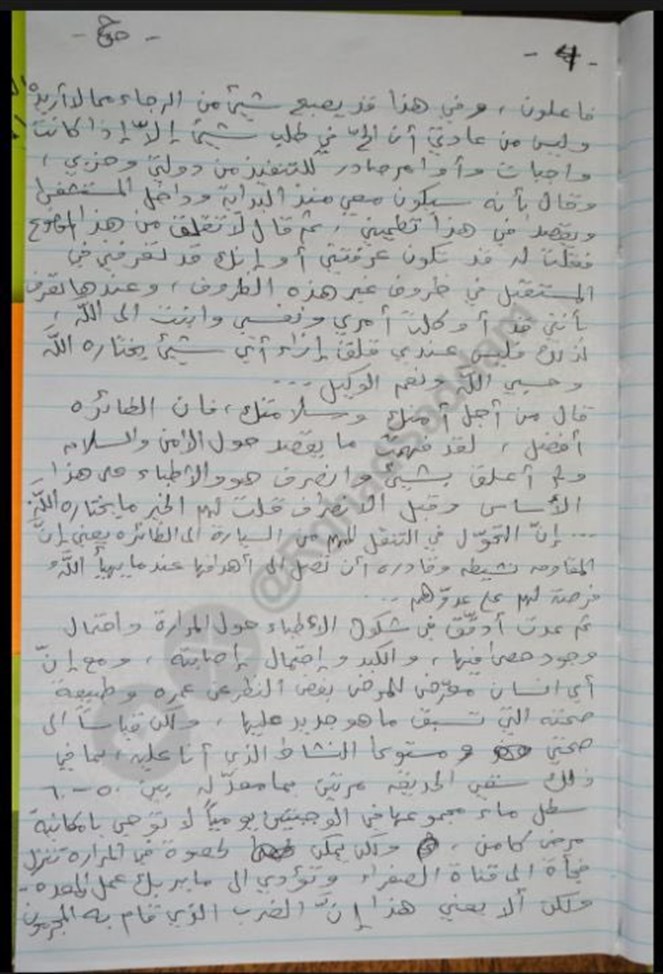 - ج -
- 4 -
فاعلون ، وفي هذا قد يصبح شيئ من الرجاء مما لا أريده
وليس من عادتي أن ألحّ في طلب شيئ إلاّ إذا كانت
واجبات وأوامر صادر للتنفيذ من دولتي وحزبي ،
وقال بأنه سيكون معي منذ البداية وداخل المستشفى
ويقصد في هذا تطميني ، ثم قال لا تقلق من هذا الموضوع
فقلت له قد تكون عرفتني أو إنك قد تعرفني في
المستقبل في ظروف غير هذه الظروف ، وعندها تعرف
بأنني قد أوكلت أمري ونفسي وابنت الى اللّه ،
لذلك فليس عندي قلق إزاء أي شيئ يختاره اللّه
وحسبي اللّه ونعم الوكيل ...
قال من أجل أمنك وسلامتك ، فان الطائره
أفضل ، لقد فهمت ما يقصد حول الأمن والسلامه
ولم أعلق بشيئ وانصرف هو والأطباء على هذا
الأساس وقبل الانصراف قلت لهم الخير ما يختاره اللّه
... إنّ التحوّل في التنقل من السيارة الى الطائره يعني إنّ
المقاومه نشيطه وقادره أن تصل الى أهدافها عندما يهيأ اللّه
فرصة لهم على عدوّهم ...
ثم عدت أدقّق في شكوك الأطباء حول المرارة واحتمال
وجود حصى فيها ، والكبد وإحتمال إصابته ، ومع إنّ
أي انسان معرّض للمرض بغض النظر عن عمره وطبيعة
صحته التي تسبق ما هو جديد عليها ، ولكن قياساً الى
صحتي و مستوى النشاط الذي أنا عليه ، بما في
ذلك سقي الحديقه مرتين بما معدّله بين ٥٠ - ٦٠
سطل ماء مجموعها في الوجبتين يومياً لا توحي بامكانية
مرض كامن ، ولكن يمكن لحصوة في المرارة تنزل
فجأة الى قناة الصفراء وتؤدي الى ما يربك عمل المعده -
ولكن ألا يعني هذا إنّ الضرب الذي قام به المجرمون
@RghadSaddam